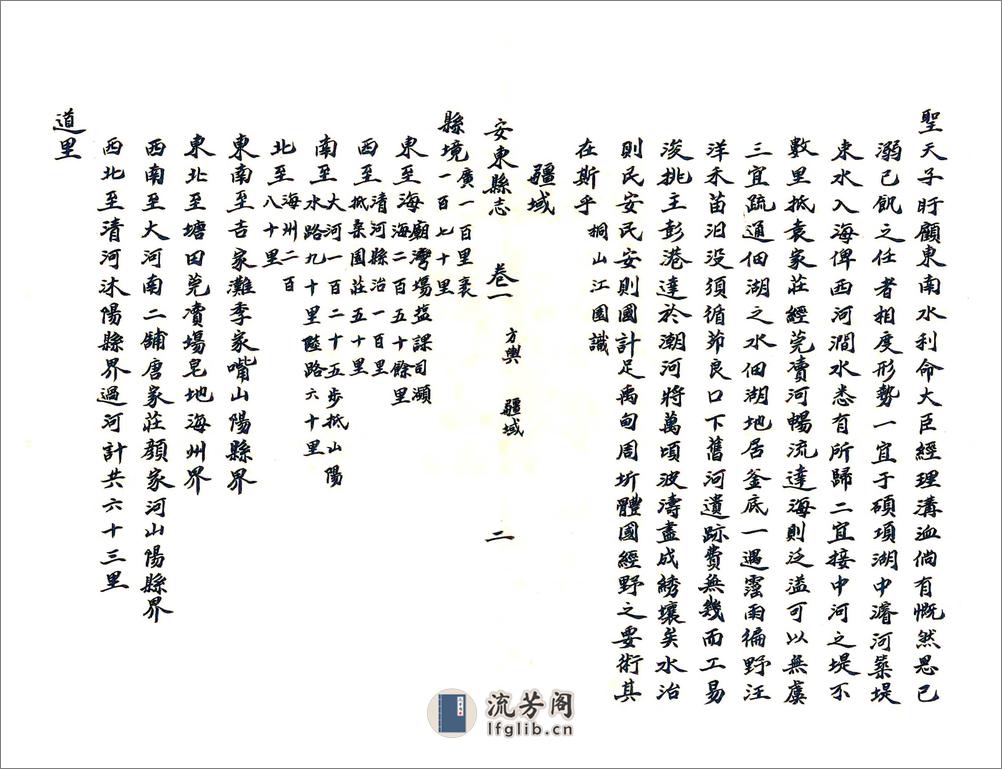 聖天子盱顧東南水利命大臣經理溝洫倘有慨然思已
溺已飢之任者相度形勢一宜于碩項湖中濬河築堤
束水入海俾西河澗水悉有所歸二宜接中河之堤不
數里抵袁家莊經莞瀆河暢流達海則泛溢可以無虞
三宜疏通佃湖之水佃湖地居釜底一遇霪雨徧野汪
洋禾苗汨没須循茆良口下舊河遺跡費無幾而工易
浚挑主彭港達於潮河將萬頃波濤盡成綉壤矣水治
則民安民安則國計足禹甸周圻體國經野之要術其
在斯乎 桐山江國識
疆域
安東縣志 卷一 方輿 疆域 二
縣境廣一百里袤一百七十里
東至海廟灣場鹽課司瀕海二百五十餘里
西至清河縣治一百里抵桑園莊五十里
南至大河一百二十五步抵山陽水路九十里陸路六十里
北至海州二百八十里
東南至吉家灘季家嘴山陽縣界
東北至塘田莞瀆場皂地海州界
西南至大河南二舖唐家莊顏家河山陽縣界
西北至清河沭陽縣界過河計共六十三里
道里
流芳阁
lfglib.cn